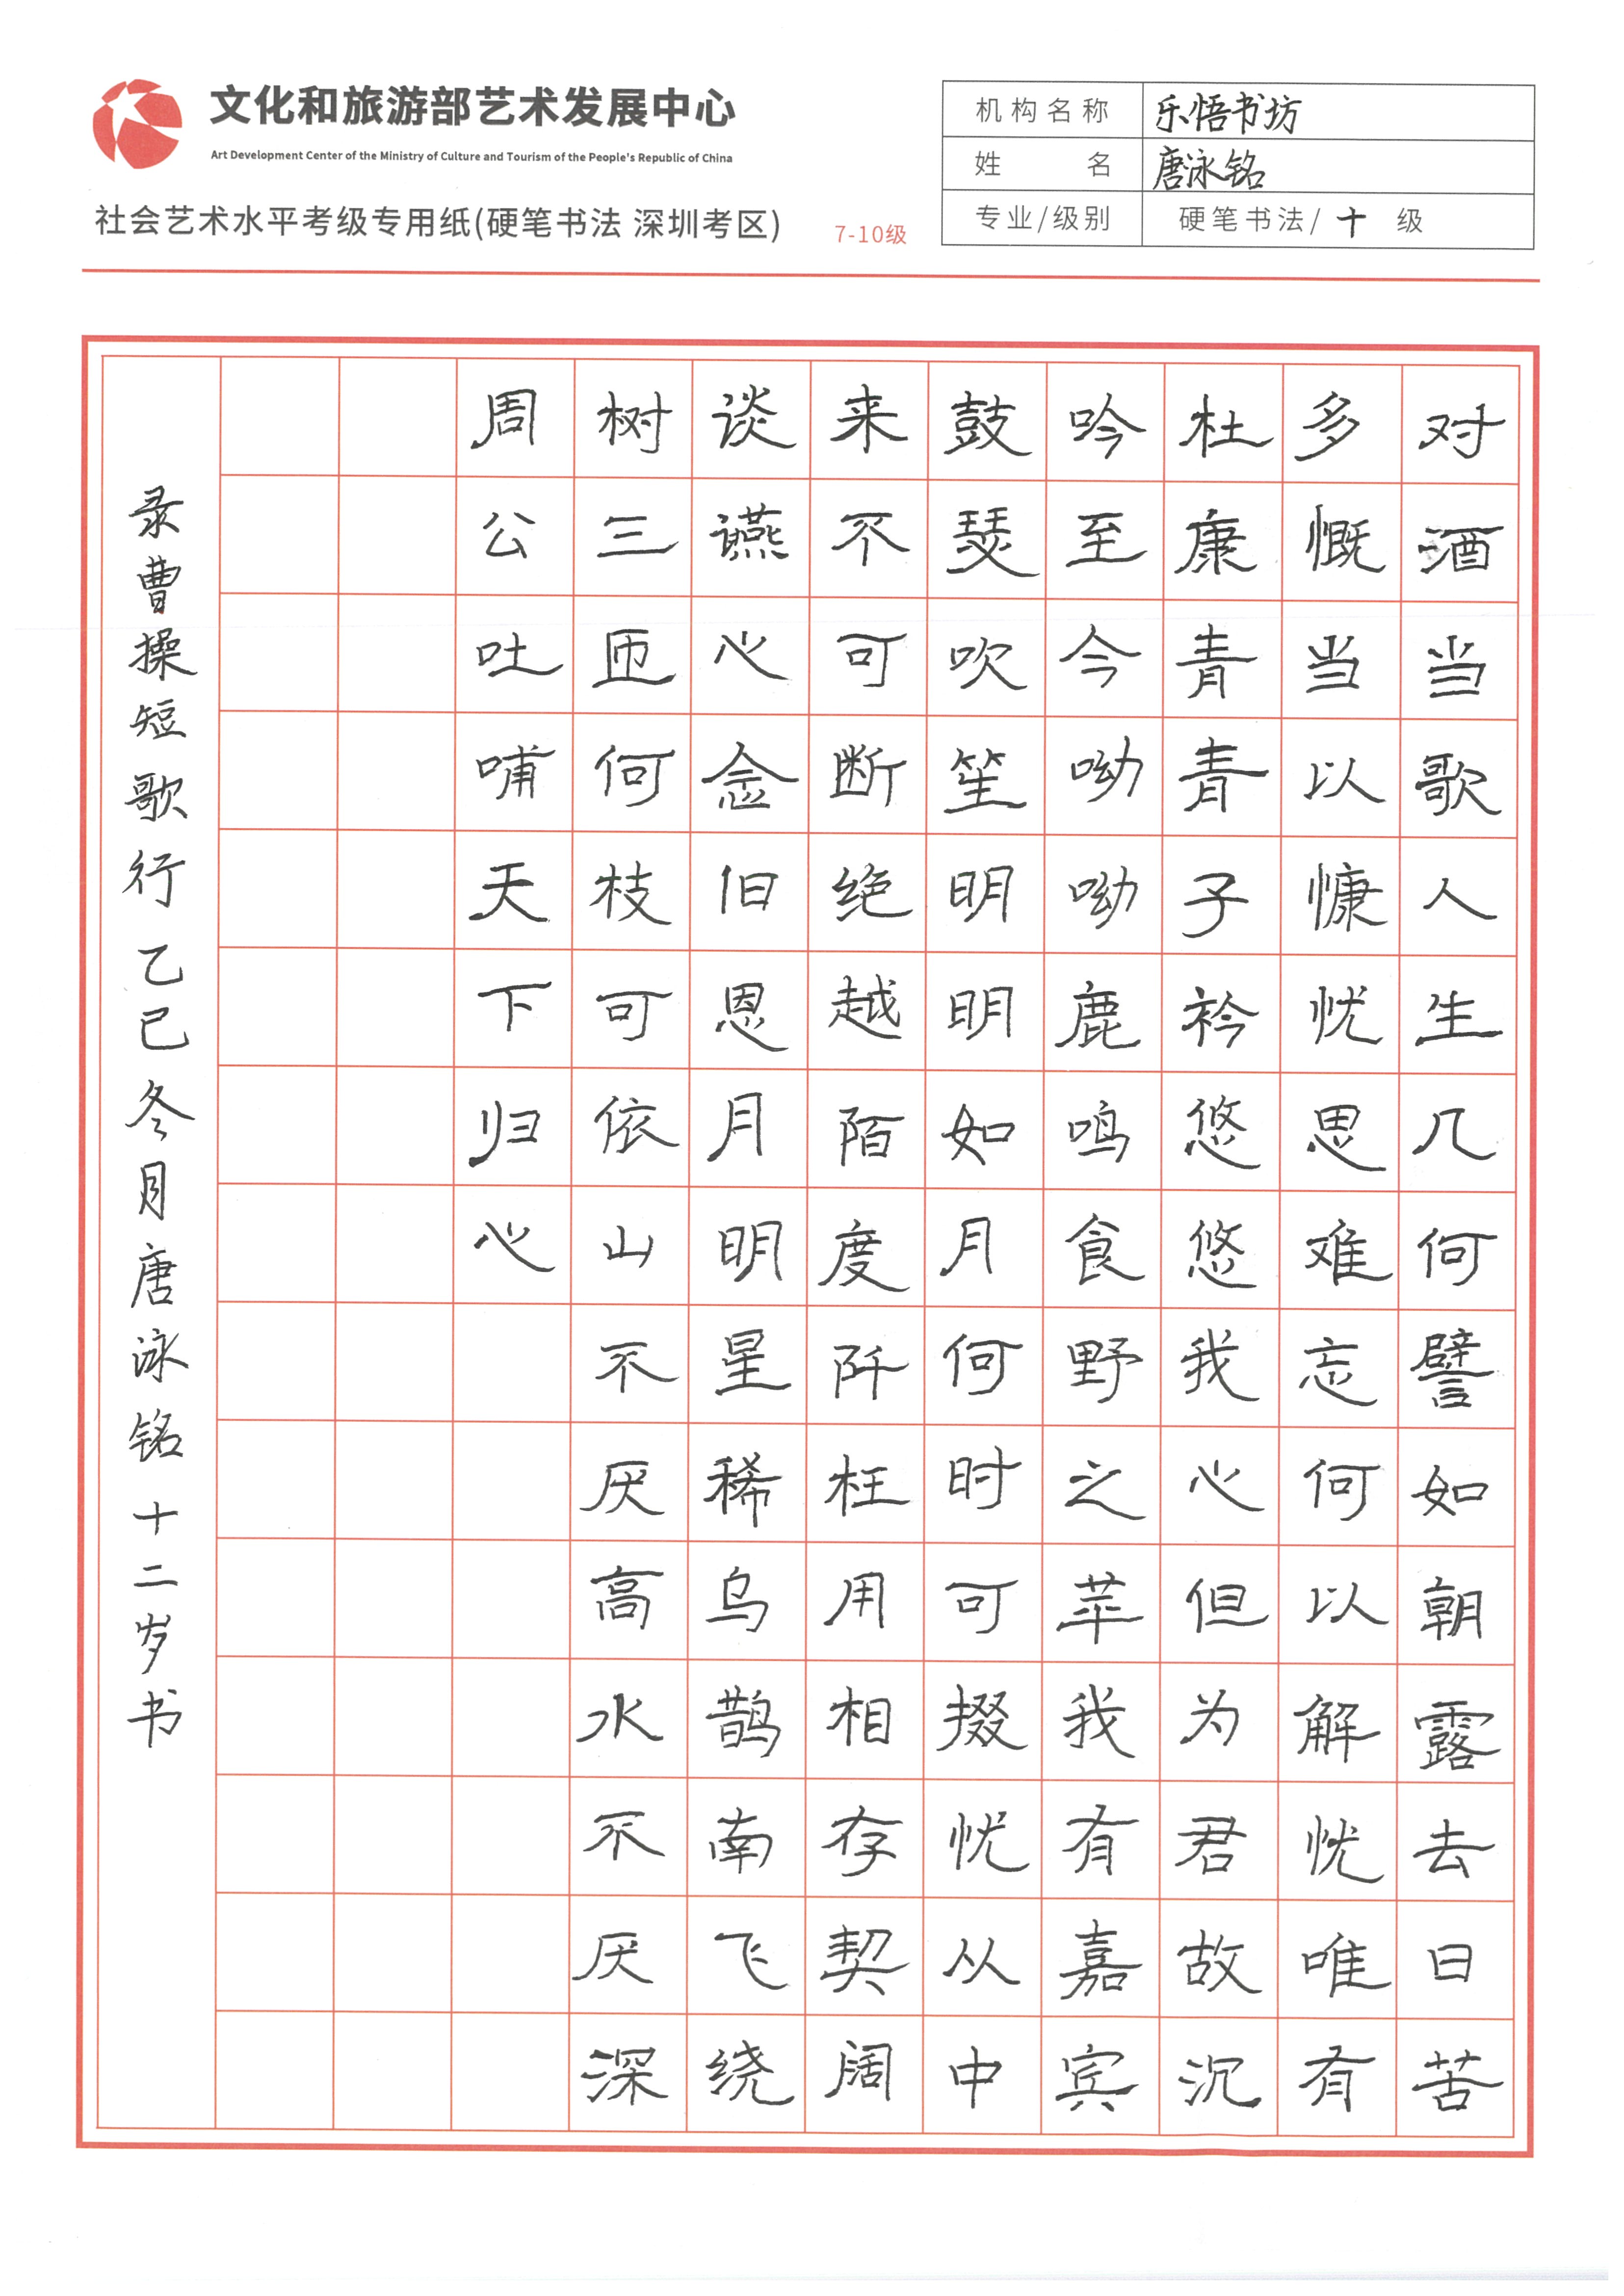 文化和旅游部艺术发展中心
Art Development Center of the Ministry of Culture and Tourism of the People's Republic of China
社会艺术水平考级专用纸(硬笔书法 深圳考区)
7-10级
机构名称 乐悟书坊
姓名 唐泳铭
专业/级别 硬笔书法/十级
对酒当歌人生几何譬如朝露去日苦
多慨当以慷忧思难忘何以解忧唯有
杜康青青子衿悠悠我心但为君故沉
吟至今呦呦鹿鸣食野之苹我有嘉宾
鼓瑟吹笙明明如月何时可掇忧从中
来不可断绝越陌度阡枉用相存契阔
谈䜩心念旧恩月明星稀乌鹊南飞绕
树三匝何枝可依山不厌高水不厌深
周公吐哺天下归心
录曹操短歌行乙巳冬月唐泳铭十二岁书